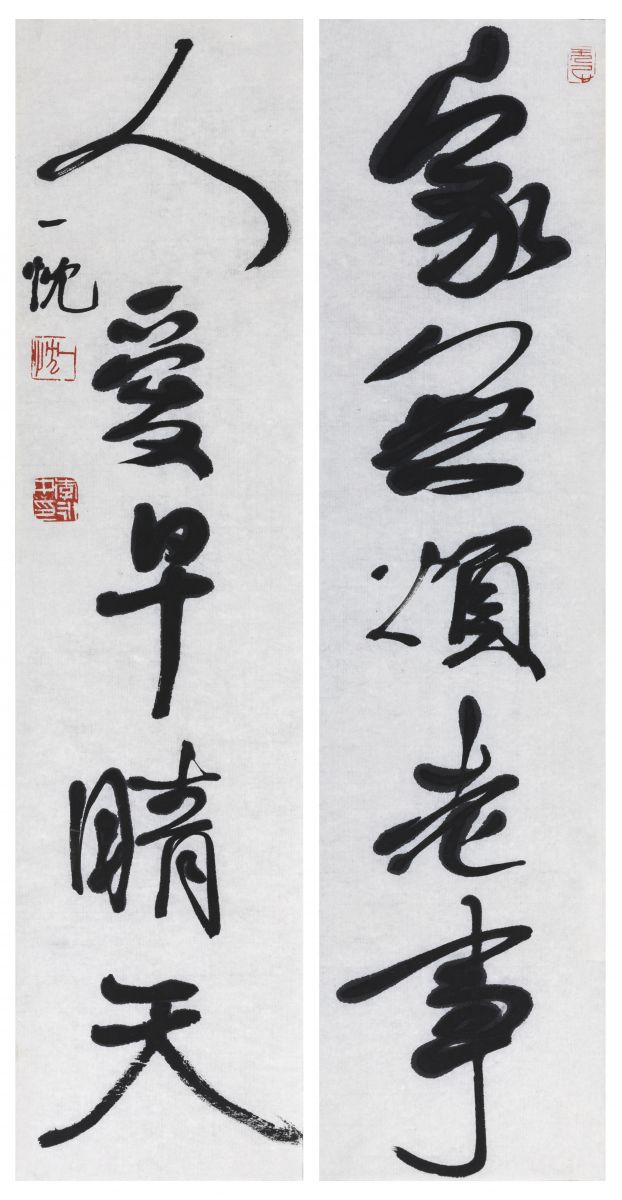 家無煩老事
人愛早晴天
一忱
一忱